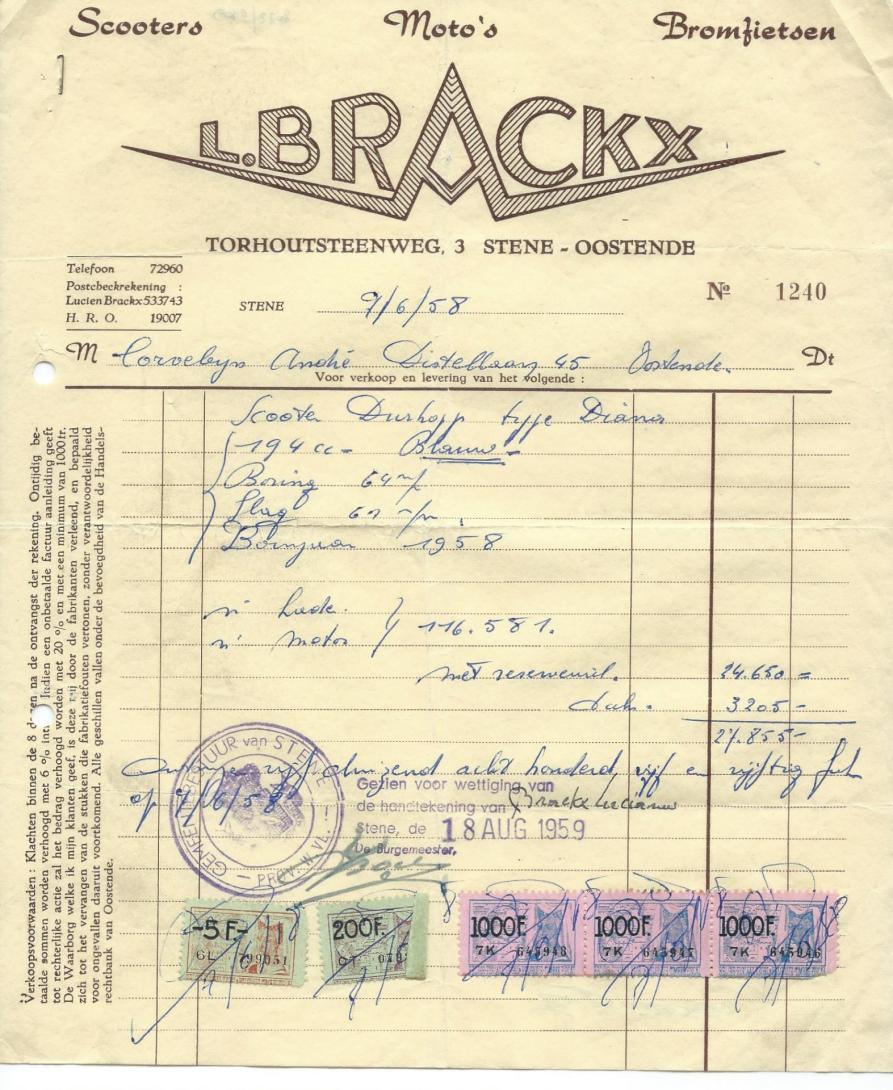 Scooters Moto's Bromfietsen
L.BRACKX
TORHOUTSTEENWEG, 3 STENE - OOSTENDE
Telefoon 72960
Postcheckrekening :
Lucien Brackx 533743
H. R. O. 19007
STENE 9/6/58
No 1240
M Corveleyn André Distellaan 45 Oostende. Dt
Voor verkoop en levering van het volgende :
Scooter Durkopp type Diana
194 cc - Blauw -
Boring 64 m/
Slag 61 m/m.
Bouwjaar 1958
n' kade.
n' motor 116.581.
met reservewiel. 24.650 =
3205 -
27.855 -
duizend acht honderd vijf en vijftig
op 9/6/58
GEMEENTEBESTUUR van STENE
- PROV. W. VL. -
Gezien voor wettiging van
de handtekening van Brackx Lucien
Stene, de 18 AUG 1959
De Burgemeester,
-5 F-
GL 799051
200F.
CT 079
1000F.
7K 645948
1000F.
7K 645947
1000F.
7K 645946
Verkoopsvoorwaarden : Klachten binnen de 8 dagen na de ontvangst der rekening. Ontijdig be-
taalde sommen worden verhoogd met 6 % int. Indien een onbetaalde factuur aanleiding geeft
tot rechterlijke actie zal het bedrag verhoogd worden met 20 % en met een minimum van 1000 fr.
De Waarborg welke ik mijn klanten geef, is deze mij door de fabrikanten verleend, en bepaald
zich tot het vervangen van de stukken die fabrikatiefouten vertonen, zonder verantwoordelijkheid
voor ongevallen daaruit voortkomend. Alle geschillen vallen onder de bevoegdheid van de Handels-
rechtbank van Oostende.